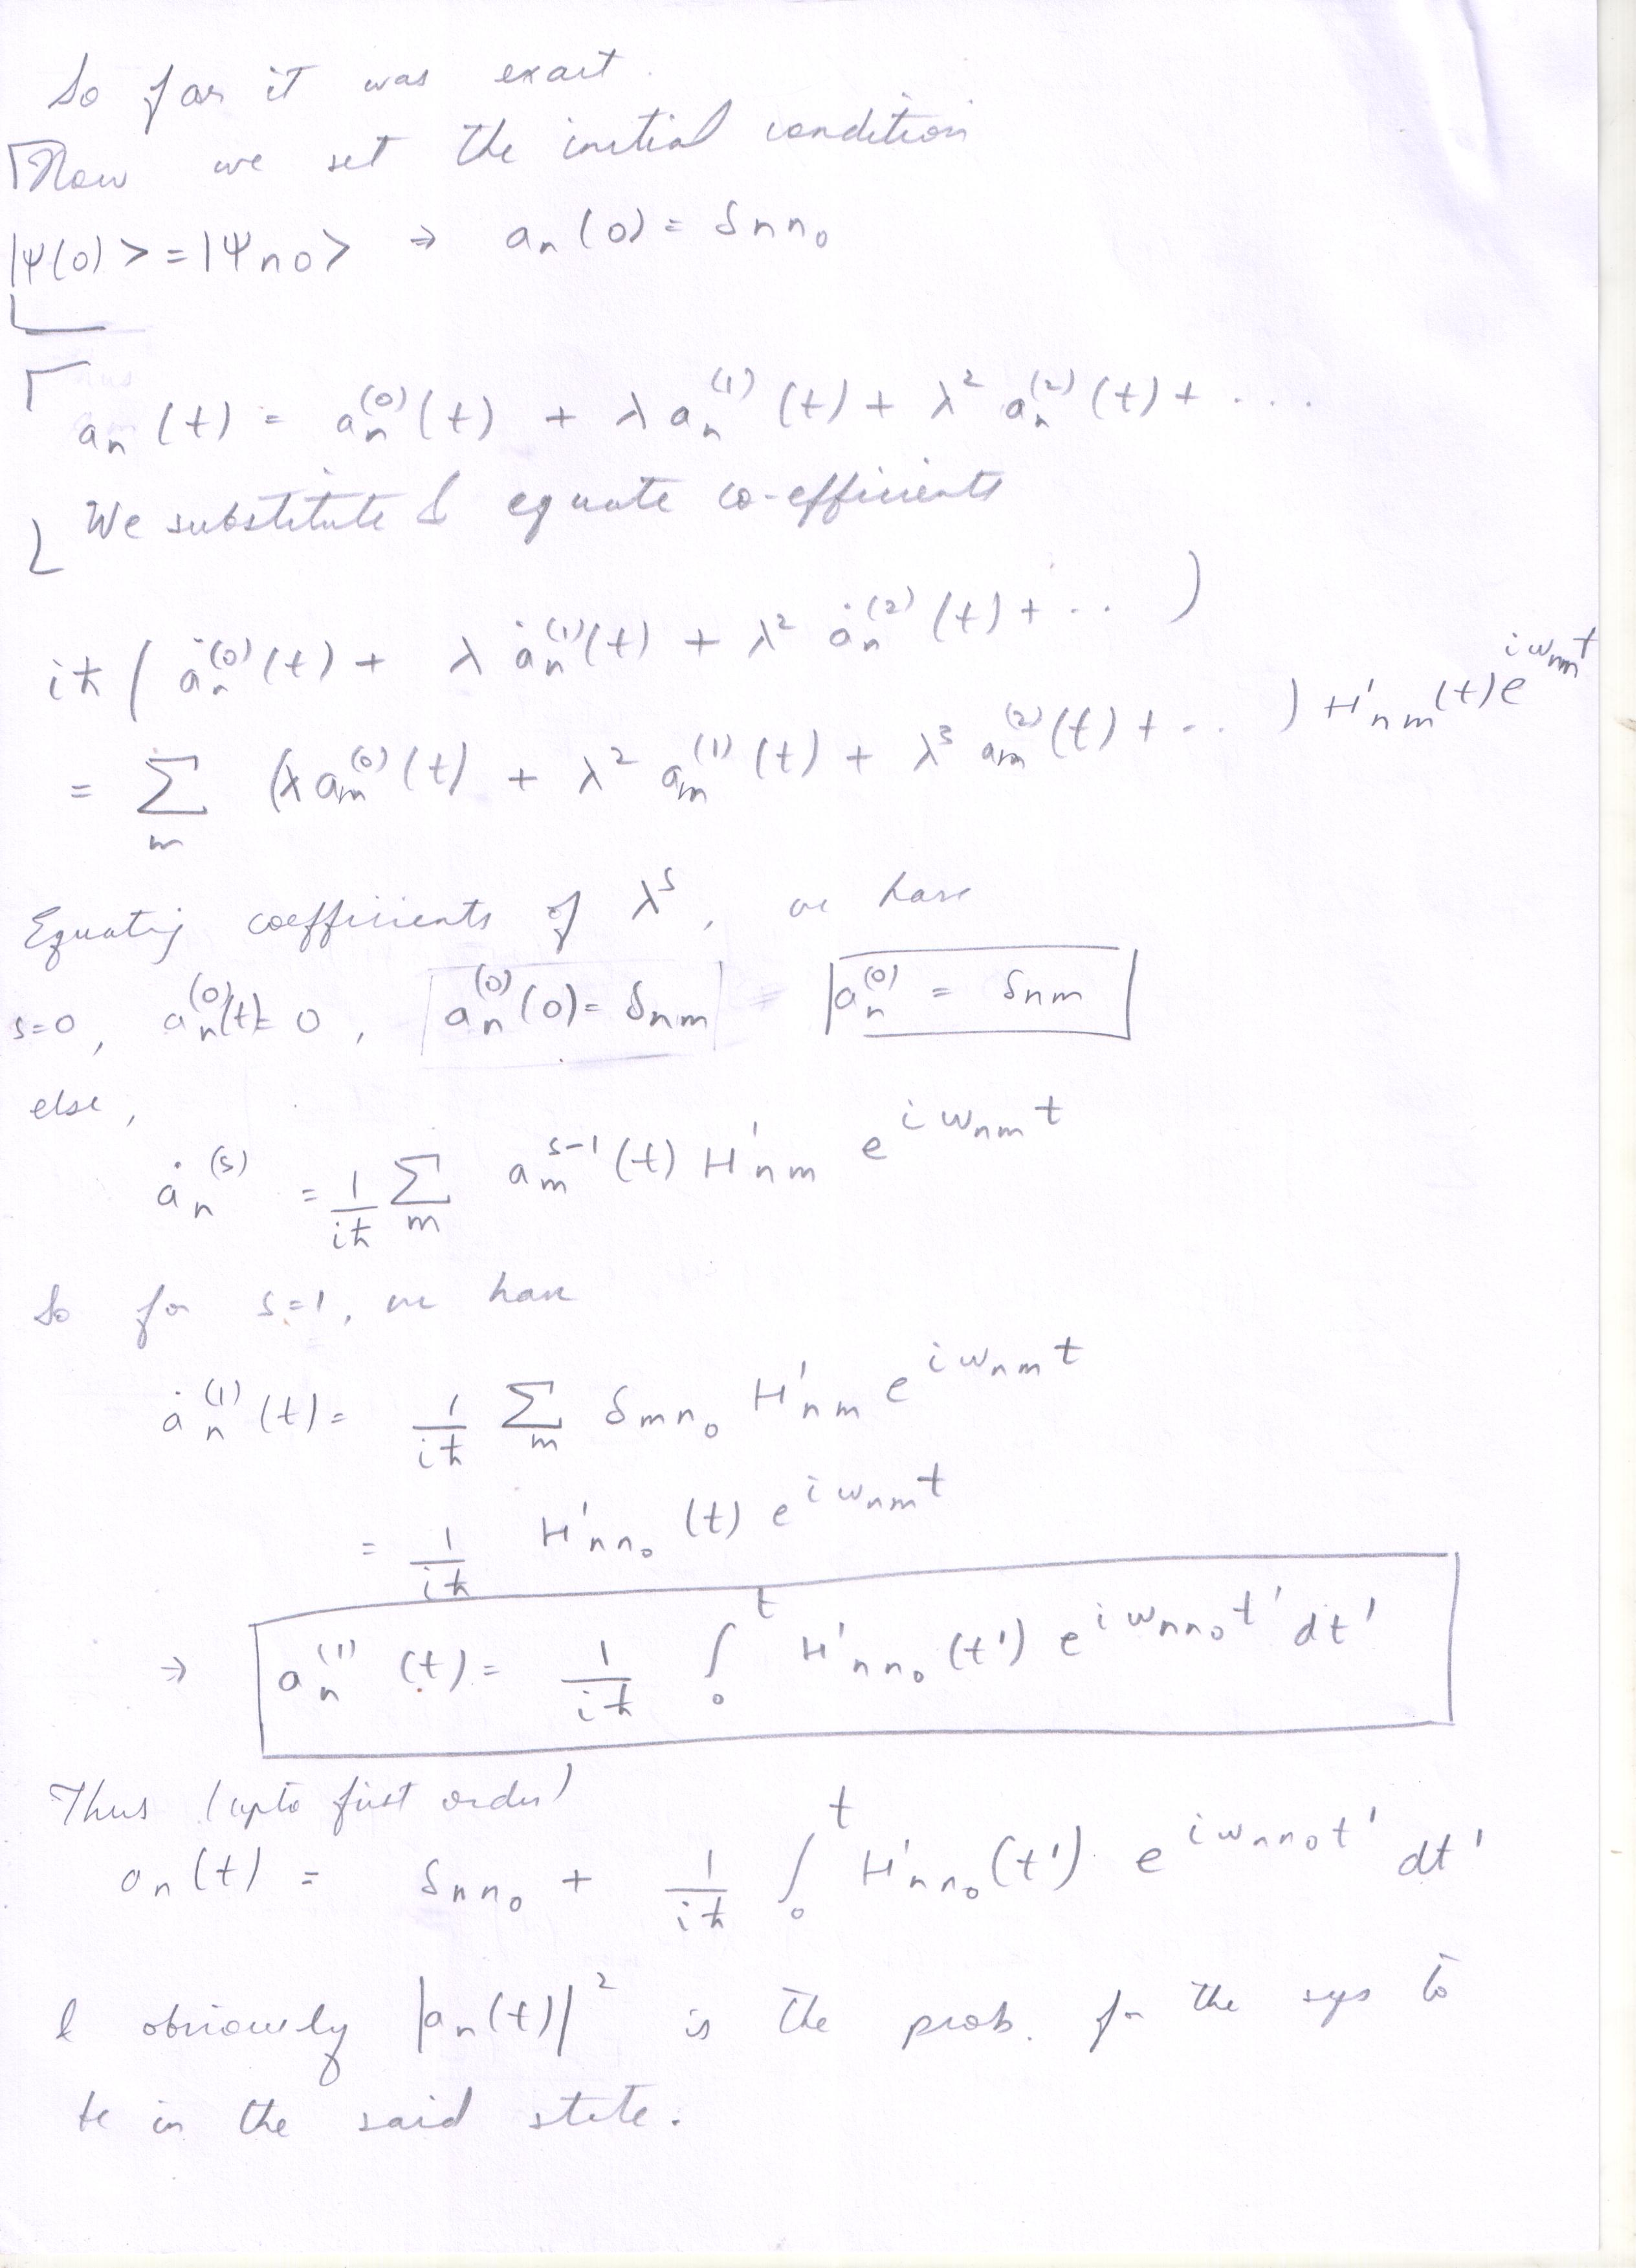 So far it was exact.
Now we set the initial condition
|ψ(0)> = |ψn0> ⇒ aₙ(0) = δnn₀
aₙ(t) = aₙ⁽⁰⁾(t) + λ aₙ⁽¹⁾(t) + λ² aₙ⁽²⁾(t) + ....
We substitute & equate co-efficients
iħ ( ȧₙ⁽⁰⁾(t) + λ ȧₙ⁽¹⁾(t) + λ² ȧₙ⁽²⁾(t) + ... )
= Σₘ (λ aₘ⁽⁰⁾(t) + λ² aₘ⁽¹⁾(t) + λ³ aₘ⁽²⁾(t) + ... ) H'nm(t) e^{iωnm t}
Equating coefficients of λˢ, we have
s=0, aₙ⁽⁰⁾(t) = 0, aₙ⁽⁰⁾(0) = δnm = aₙ⁽⁰⁾ = δnm
else,
ȧₙ⁽ˢ⁾ = 1/iħ Σₘ aₘˢ⁻¹(t) H'nm e^{iωnm t}
So for s=1, we have
ȧₙ⁽¹⁾(t) = 1/iħ Σₘ δmn₀ H'nm e^{iωnm t}
= 1/iħ H'nn₀ (t) e^{iωnm t}
⇒ aₙ⁽¹⁾ (t) = 1/iħ ∫₀ᵗ H'nn₀ (t') e^{iωnn₀t'} dt'
Thus (upto first order)
aₙ(t) = δnn₀ + 1/iħ ∫₀ᵗ H'nn₀(t') e^{iωnn₀t'} dt'
& obviously |aₙ(t)|² is the prob. for the sys to
be in the said state.